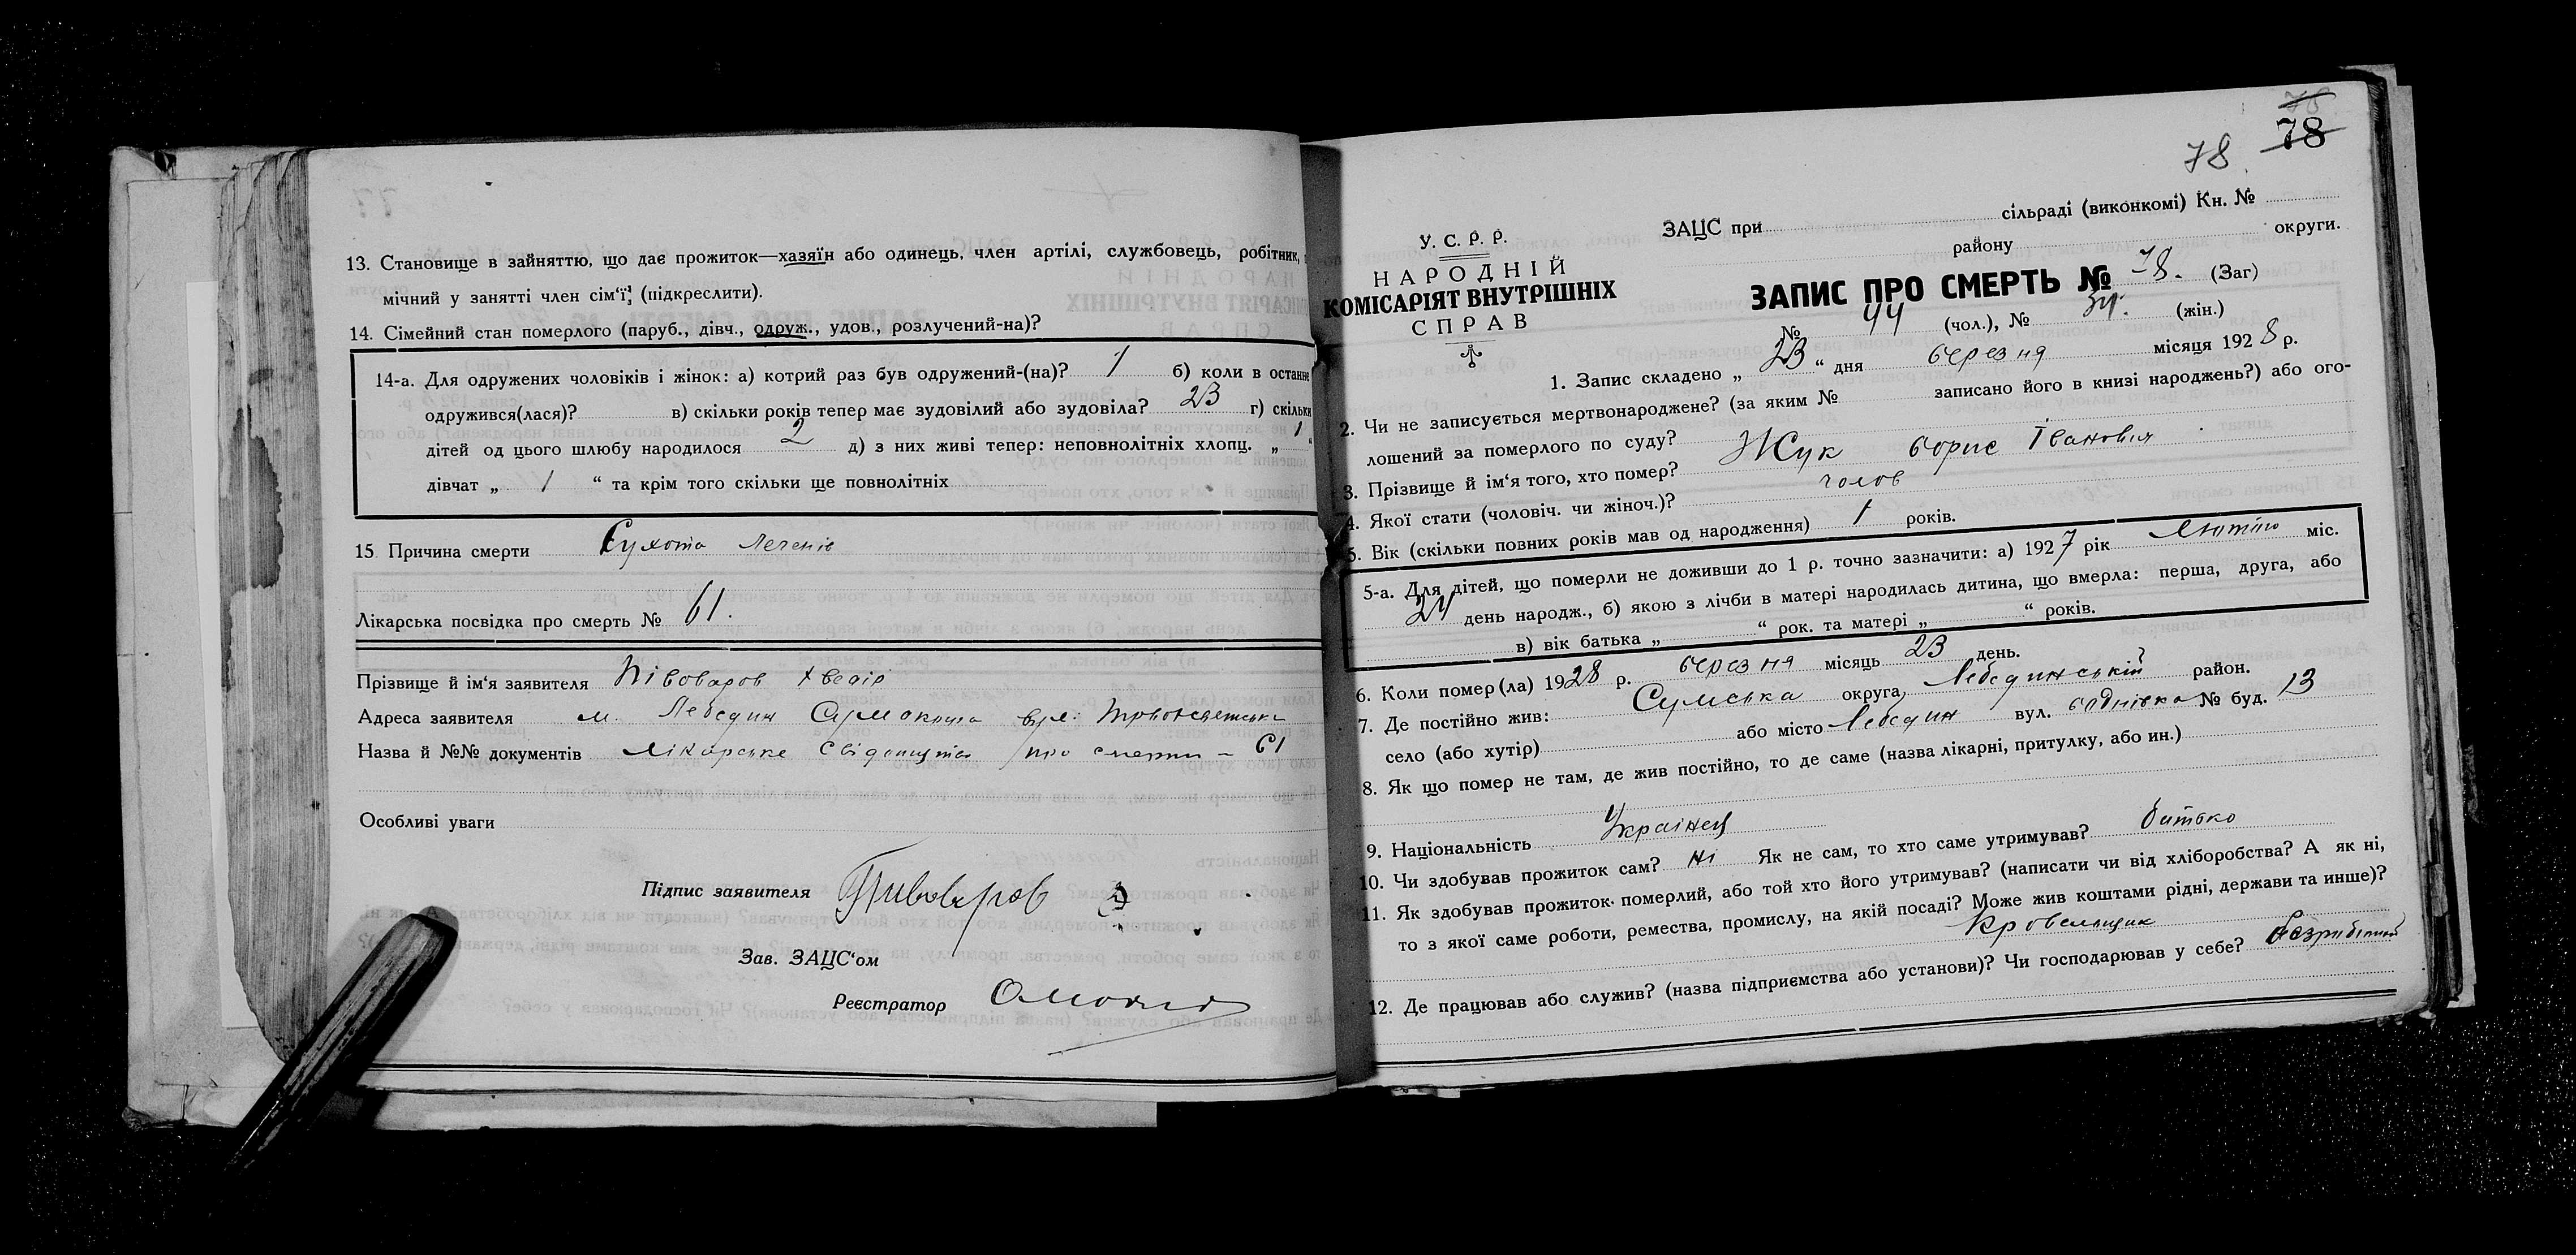 13. Становище в зайняттю, що дає прожиток—хазяїн або одинець, член артілі, службовець, робітник,
мічний у занятті член сім‘ї, (підкреслити).
14. Сімейний стан померлого (паруб., дівч., одруж., удов., розлучений-на)?
14-а. Для одружених чоловіків і жінок: а) котрий раз був одружений-(на)? 1 б) коли в останнє
одружився(лася)? в) скільки років тепер має зудовілий або зудовіла? 23 г) скільки
дітей од цього шлюбу народилося 2 д) з них живі тепер: неповнолітніх хлопц. „ 1 “
дівчат „ 1 “ та крім того скільки ще повнолітніх
15. Причина смерти Сухота легенів
Лікарська посвідка про смерть № 61.
Прізвище й ім‘я заявителя Півоваров
Адреса заявителя м. Лебедин вул.
Назва й №№ документів Лікарське про смерть – 61
Особливі уваги
Підпис заявителя Пивоваров
Зав. ЗАЦС‘ом
Реєстратор
78
78
78
У. С. Р. Р.
НАРОДНІЙ
КОМІСАРІЯТ ВНУТРІШНІХ
СПРАВ
ЗАЦС при сільраді (виконкомі) Кн. №
району округи.
ЗАПИС ПРО СМЕРТЬ № 78. (Заг)
№ 44 (чол.), № 34. (жін.)
1. Запис складено „ 23 “ дня березня місяця 1928 р.
2. Чи не записується мертвонароджене? (за яким № записано його в книзі народжень?) або ого-
лошений за померлого по суду?
3. Прізвище й ім‘я того, хто помер? Жук Борис Іванович
4. Якої стати (чоловіч. чи жіноч.)? чолов
5. Вік (скільки повних років мав од народження) 1 років.
5-а. Для дітей, що померли не доживши до 1 р. точно зазначити: а) 1927 рік Лютого міс.
24 день народж., б) якою з лічби в матері народилась дитина, що вмерла: перша, друга, або
в) вік батька „ “ рок. та матері „ “ років.
6. Коли помер(ла) 1928 р. березня місяць 23 день.
7. Де постійно жив: Сумська округа, Лебединський район.
село (або хутір) або місто Лебедин вул. № буд. 13
8. Як що помер не там, де жив постійно, то де саме (назва лікарні, притулку, або ин.)
9. Національність Українец
10. Чи здобував прожиток сам? ні Як не сам, то хто саме утримував? батько
11. Як здобував прожиток померлий, або той хто його утримував? (написати чи від хліборобства? А як ні,
то з якої саме роботи, ремества, промислу, на якій посаді? Може жив коштами рідні, держави та инше)?
Кровельщик
12. Де працював або служив? (назва підприємства або установи)? Чи господарював у себе? безробітний